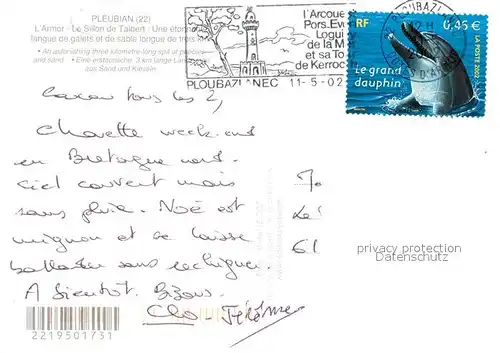 PLEUBIAN (22)
L'Armor - Le Sillon de Talbert : Une étonnante
langue de galets et de sable longue de trois
An astonishing three kilometre-long spit of pebbles
and sand Eine erstaunliche, 3 km lange
aus Sand und Kieseln
l'Arcoue
Pors.Ev
Logui
de la M
et sa To
de Kerroc
PLOUBAZLANEC 11-5-02
PLOUBAZL
RF 0,46 €
Le grand
dauphin
LA POSTE 2002
tous les 2,
Chouette week-end
en Bretagne
ciel couvert mais
sans pluie. Noé est
mignon et se laisse
ballader sans rechigner.
A bientôt. Bizous.
Clo - Jérôme
61
privacy protection
Datenschutz
2219501731